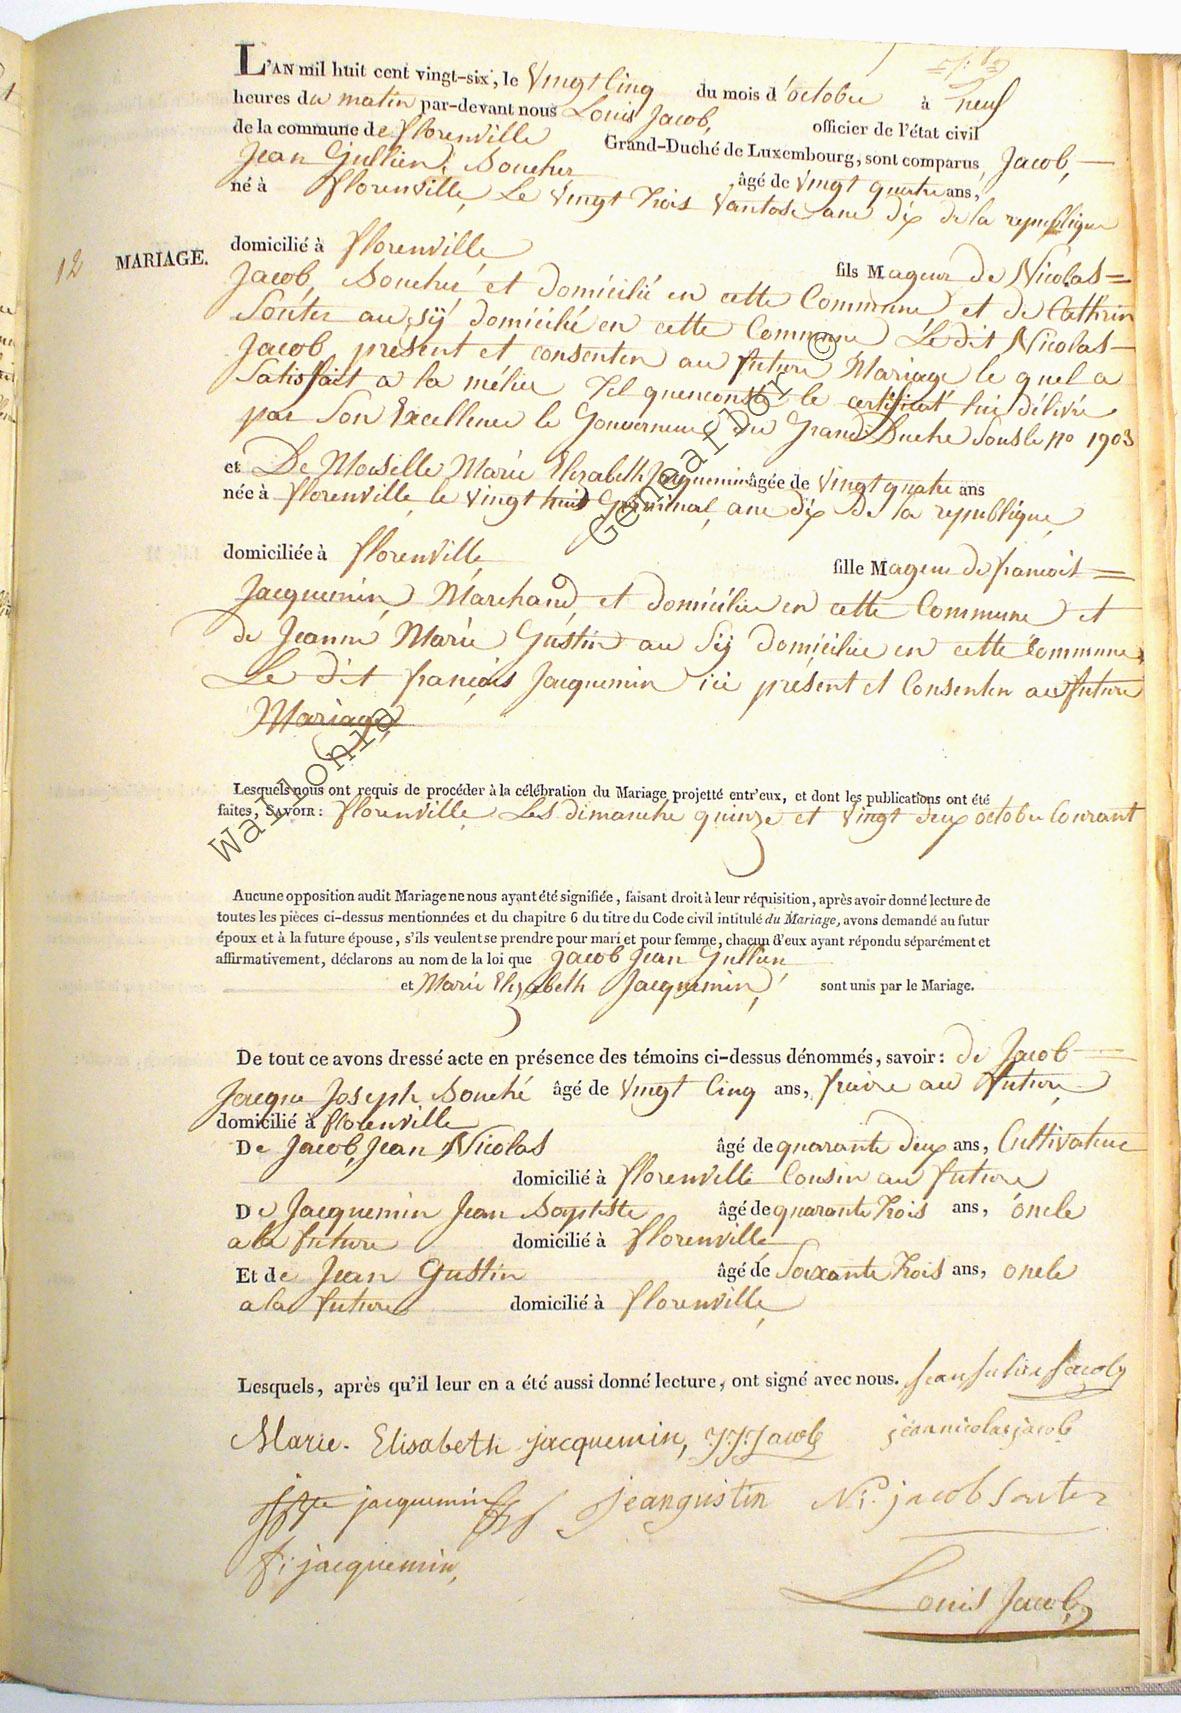 L'AN mil huit cent vingt-six, le Vingt Cinq du mois d'octobre à neuf
heures du matin par-devant nous Louis Jacob, officier de l'état civil
de la commune de florenville Grand-Duché de Luxembourg, sont comparus Jacob,
Jean Jullien, Boucher âgé de vingt quatre ans,
né à florenville, Le Vingt trois Vantose ane dix de la republique
12 MARIAGE.
domicilié à florenville fils Mageur de Nicolas
Jacob, Bouché et domicilié en cette Commune et de Cathrin
Souter au sÿ domicilié en cette Commune Le dit Nicolas
Jacob present et consenten au future Mariage le quel a
Satisfait a la mélice tel quenconste le certificat lui délivré
par Son Excellence le Gouverneur du Grand Duché Sous le no 1903
et De Moiselle Marie Elizabeth Jacquemin âgée de Vingt quatre ans
née à florenville, le vingt huit Germinal, ane dix de la republique,
domiciliée à florenville fille Mageur de francois
Jacquemin, Marchand, et domicilié en cette Commune et
de Jeanne Marie Gustin au Sij domiciliée en cette Commune,
Le dit françois Jacquemin ici présent et Consenten au future
Mariage,
Lesquels nous ont requis de procéder à la célébration du Mariage projetté entr'eux, et dont les publications ont été
faites, SAVOIR: florenville, Les dimanche quinze et vingt deux octobre Courant
Aucune opposition audit Mariage ne nous ayant été signifiée, faisant droit à leur réquisition, après avoir donné lecture de
toutes les pièces ci-dessus mentionnées et du chapitre 6 du titre du Code civil intitulé du Mariage, avons demandé au futur
époux et à la future épouse, s'ils veulent se prendre pour mari et pour femme, chacun d'eux ayant répondu séparément et
affirmativement, déclarons au nom de la loi que Jacob Jean Jullien
et Marie Elizabeth Jacquemin, sont unis par le Mariage.
De tout ce avons dressé acte en présence des témoins ci-dessus dénommés, savoir: de Jacob
Jacque Joseph Bouché âgé de Vingt Cinq ans, fraire au future
domicilié à florenville
De Jacob, Jean Nicolas âgé de quarante deux ans, Cultivateur
domicilié à florenville Cousin au future
De Jacquemin Jean Baptiste âgé de quarante trois ans, oncle
a la future domicilié à florenville
Et de Jean Gustin âgé de Soixante trois ans, oncle
a la future domicilié à florenville,
Lesquels, après qu'il leur en a été aussi donné lecture, ont signé avec nous. Jean Julien Jacob
Marie. Elisabeth jacquemin, J.J. Jacob jean nicolas jacob
jacquemin jeangustin Ni. jacob Souter
f. jacquemin,
Louis Jacob,
Wallonia Genealdor ©